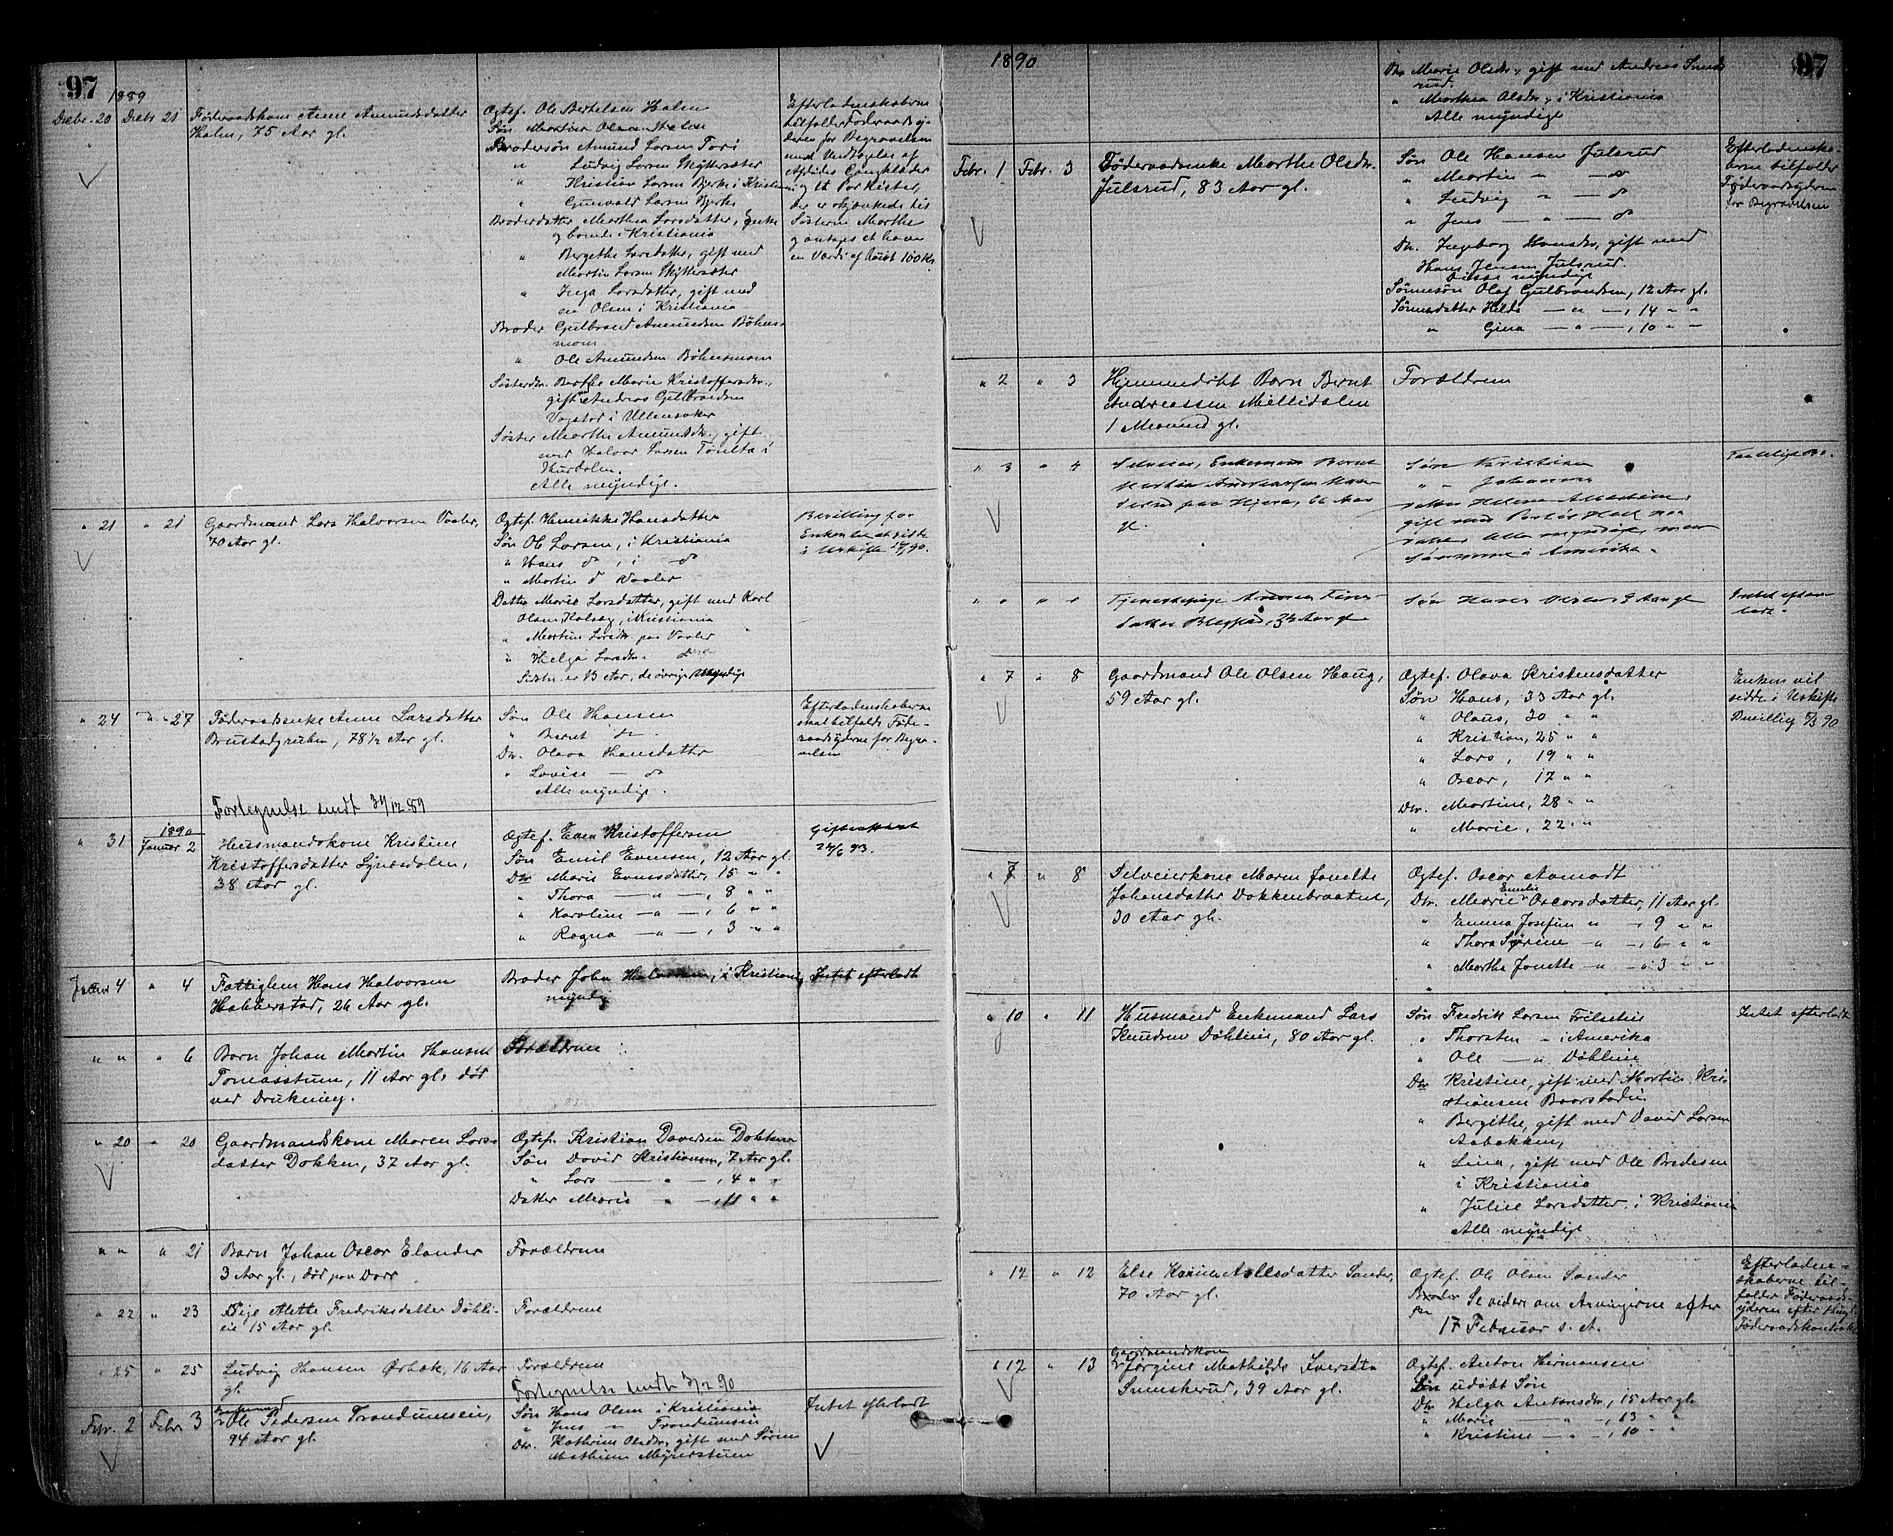 97
1889
Decbr. 20 Decbr 21 Föderaadskone Anne Amundsdatter
Halen, 75 Aar gl.
Ogtef. Ole Bertelsen Halen
Søn Martius Olsen Halen
Brodersøn Amund Larsen Tori
" Ludvig Larsen
" Kristian Larsen Bjerke i Kristiania
" Gunvald Larsen Bjerke
Broderdatter Marthea Larsdatter, Enke
og boende i Kristiania
" Bergethe Larsdatter, gift med
Martin Larsen
" Inga Larsdatter, gift med
en Olsen i Kristiania
Broder Gulbrand Amundsen Böhns-
moen
" Ole Amundsen Böhnsmoen
Søsterdtr. Berthe Marie Kristoffersdtr.,
gift m Andreas Gulbrandsen
Vogstad i Ullensaker
Søster Marthe Amundsdtr., gift
med Halvor Larsen i
Hurdalen.
Alle myndige.
Efterladenskaberne
tilfalder Föderaadsy-
deren for Begravelsen
med Undtagelse af
Afdødes Gangklæder
og et Par Kister,
der er skjænkede til
Søsteren Marthe
og antages at have
en Værdi af 100 Kr.
" 21 " 21 Gaardmand Lars Halvorsen Vaaler,
70 Aar gl.
Ogtef. Henrikke Hansdatter
Søn Ole Larsen, i Kristiania
" Hans do, i do
" Martin do Vaaler
Datter Marie Larsdatter, gift med Karl
Olsen, i Kristiania
" Martine Larsdtr. paa Vaaler
" Helga Larsdtr. do
Sidstn. er 13 Aar, de øvrige Myndige
Bevilling for
Enken til at sidde
i Uskifte /90.
" 24 " 27 Föderaadsenke Anne Larsdatter
Brustadgruben, 78½ Aar gl.
Søn Ole Hansen
" Bernt do
Dtr. Olava Hansdatter
" Lovise — do
Alle myndige.
Efterladenskaberne
skal tilfalde Föde-
raadsyderne for Begra-
velsen
Fortegnelse sendt 31/12 89
" 31 1890 Januar 2 Husmandskone Kristine
Kristoffersdatter Lynesdalen,
38 Aar gl.
Ogtef. Even Kristoffersen
Søn Emil Evensen, 12 Aar gl.
Dtr. Marie Evensdatter, 15 " "
" Thora — " —, 8 " "
" Karoline — " —, 6 " "
" Ragna — " —, 3 " "
24/6 93.
Januar 4 " 4 Fattiglem Hans Halvorsen
Habberstad, 26 Aar gl.
Broder John Halvorsen, i Kristiania,
myndig
Intet efterladt
" " " 6 Barn Johan Martin Hansen
Tomasstuen, 11 Aar gl., død
ved Drukning.
Forældrene
" 20 " 20 Gaardmandskone Maren Lars-
datter Dokken, 37 Aar gl.
Ogtef. Kristian Davidsen Dokken
Søn David Kristiansen, 7 Aar gl.
" Lars — " —, 4 " "
Datter Marie " —, 11 " "
" " " 21 Barn Johan Oscar Elander
3 Aar gl., død paa Dorr
Forældrene
" 22 " 23 Pige Alette Fredriksdatter Döhli-
eie 15 Aar gl.
Forældrene
" 25 " 25 Ludvig Hansen Ørbæk, 16 Aar
gl.
Forældrene
Fortegnelse sendt 3/2 90
Febr. 2 Febr. 3 Ole Pedersen Trandumseie,
94 Aar gl.
Søn Hans Olsen i Kristiania
" Jens " Trandumseie
Dtr. Kathrine Olsdtr., gift med Søren
Mathisen Meierstuen
Intet efterladt
1890
97
Dtr. Marie Olsdtr., gift med Andreas Smeds-
rud.
" Marthea Olsdtr., i Kristiania
Alle myndige
Febr. 1 Febr. 3 Föderaadsenke Marthe Olsdtr.
Julsrud, 83 Aar gl.
Søn Ole Hansen Julsrud
" Martin " — do
" Ludvig " — do
" Jens — " — do
Dtr. Ingeborg Hansdtr., gift med
Hans Jensen Julsrud.
Disse myndige
Sønnesøn Olaf Gulbrandsen, 12 Aar gl.
Sønnedatter Hilda — " —, 14 " "
" Gina — " —, 10 " "
Efterladenska-
berne tilfalder
Föderaadsyderen
for Begravelsen
" 2 " 3 Hjemmedøbt Barn Bernt
Andreassen Mellidalen
1 Maaned gl.
Forældrene
" 3 " 4 Enkemand Bernt
Martin Andreassen
paa Hjera, 66 Aar
gl.
Søn Kristian
" " Johannes
gift med
Alle myndige
Sønnerne i Amerika.
" " " " Tjenestepige
, 34 Aar gl
Søn Hans Olsen 9 Aar gl
Intet efter-
ladt.
" 7 " 8 Gaardmand Ole Olsen Haug,
59 Aar gl.
Ogtef. Olava Kristensdatter
Søn Hans, 33 Aar gl.
" Olaus, 30 " "
" Kristian, 25 " "
" Lars, 19 " "
" Oscar, 17 " "
Dtr. Martine, 28 " "
" Marie, 22 " "
Enken vil
sidde i Uskifte
Bevillig 5/3 90
" 8 " 8 Selveierkone Maren Jonette
Johansdatter Dokkenbraaten,
30 Aar gl.
Ogtef. Oscar Aamodt
Dtr. Marie Emilie Oscarsdatter, 11 Aar gl.
" Emma Josefine " —, 9 " "
" Thora Sørine — " —, 6 " "
" Martha Jonette — " —, 3 " "
" 10 " 11 Husmand Enkemand Lars
Knudsen Döhlieie, 80 Aar gl.
Søn Fredrik Larsen Frilseteie
" Thorsten — " i Amerika
" Ole — " Döhlieie
Dtr Kristine, gift med Martin Kri-
stiansen Baarstadeie
" Bergithe, gift med David Larsen
Aabakken,
" Lina, gift med Ole Bredesen
i Kristiania
" Julie Larsdatter i Kristiania
Alle myndige
Intet efterladt
" 12 " 12 Else Karine Nilsdatter Sander,
70 Aar gl.
Ogtef. Ole Olsen Sander
Broder Se videre om Arvingerne efter
17 Februar d. A.
Efterladen-
skaberne til-
falder Föderaads-
yderen efter tingl.
Föderaadskontrakt
" 12 " 13 Gaardmandskone
Jørgine Mathilde Iversdtr
Svenskerud, 39 Aar gl.
Ogtef. Anton Hermansen
Søn udøbt Søn
Dtr. Helga Antonsdtr., 15 Aar gl.
" Marie — " —, 13 " "
" Kristine — " —, 10 " "